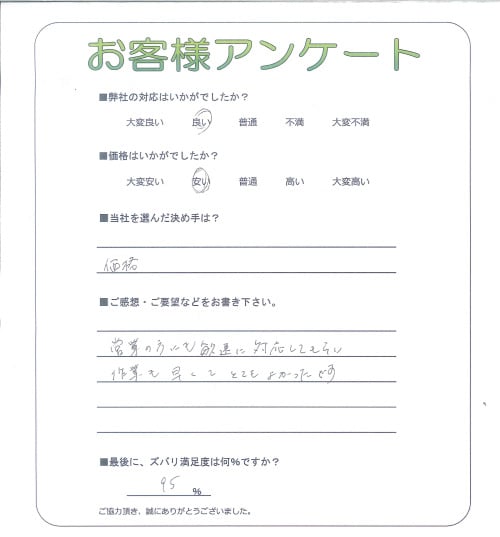 お客様アンケート
■弊社の対応はいかがでしたか？
大変良い 良い 普通 不満 大変不満
■価格はいかがでしたか？
大変安い 安い 普通 高い 大変高い
■当社を選んだ決め手は？
価格
■ご感想・ご要望などをお書き下さい。
営業の方にも敏速に対応してもらい
作業も早くてとてもよかったです
■最後に、ズバリ満足度は何%ですか？
95 %
ご協力頂き、誠にありがとうございました。